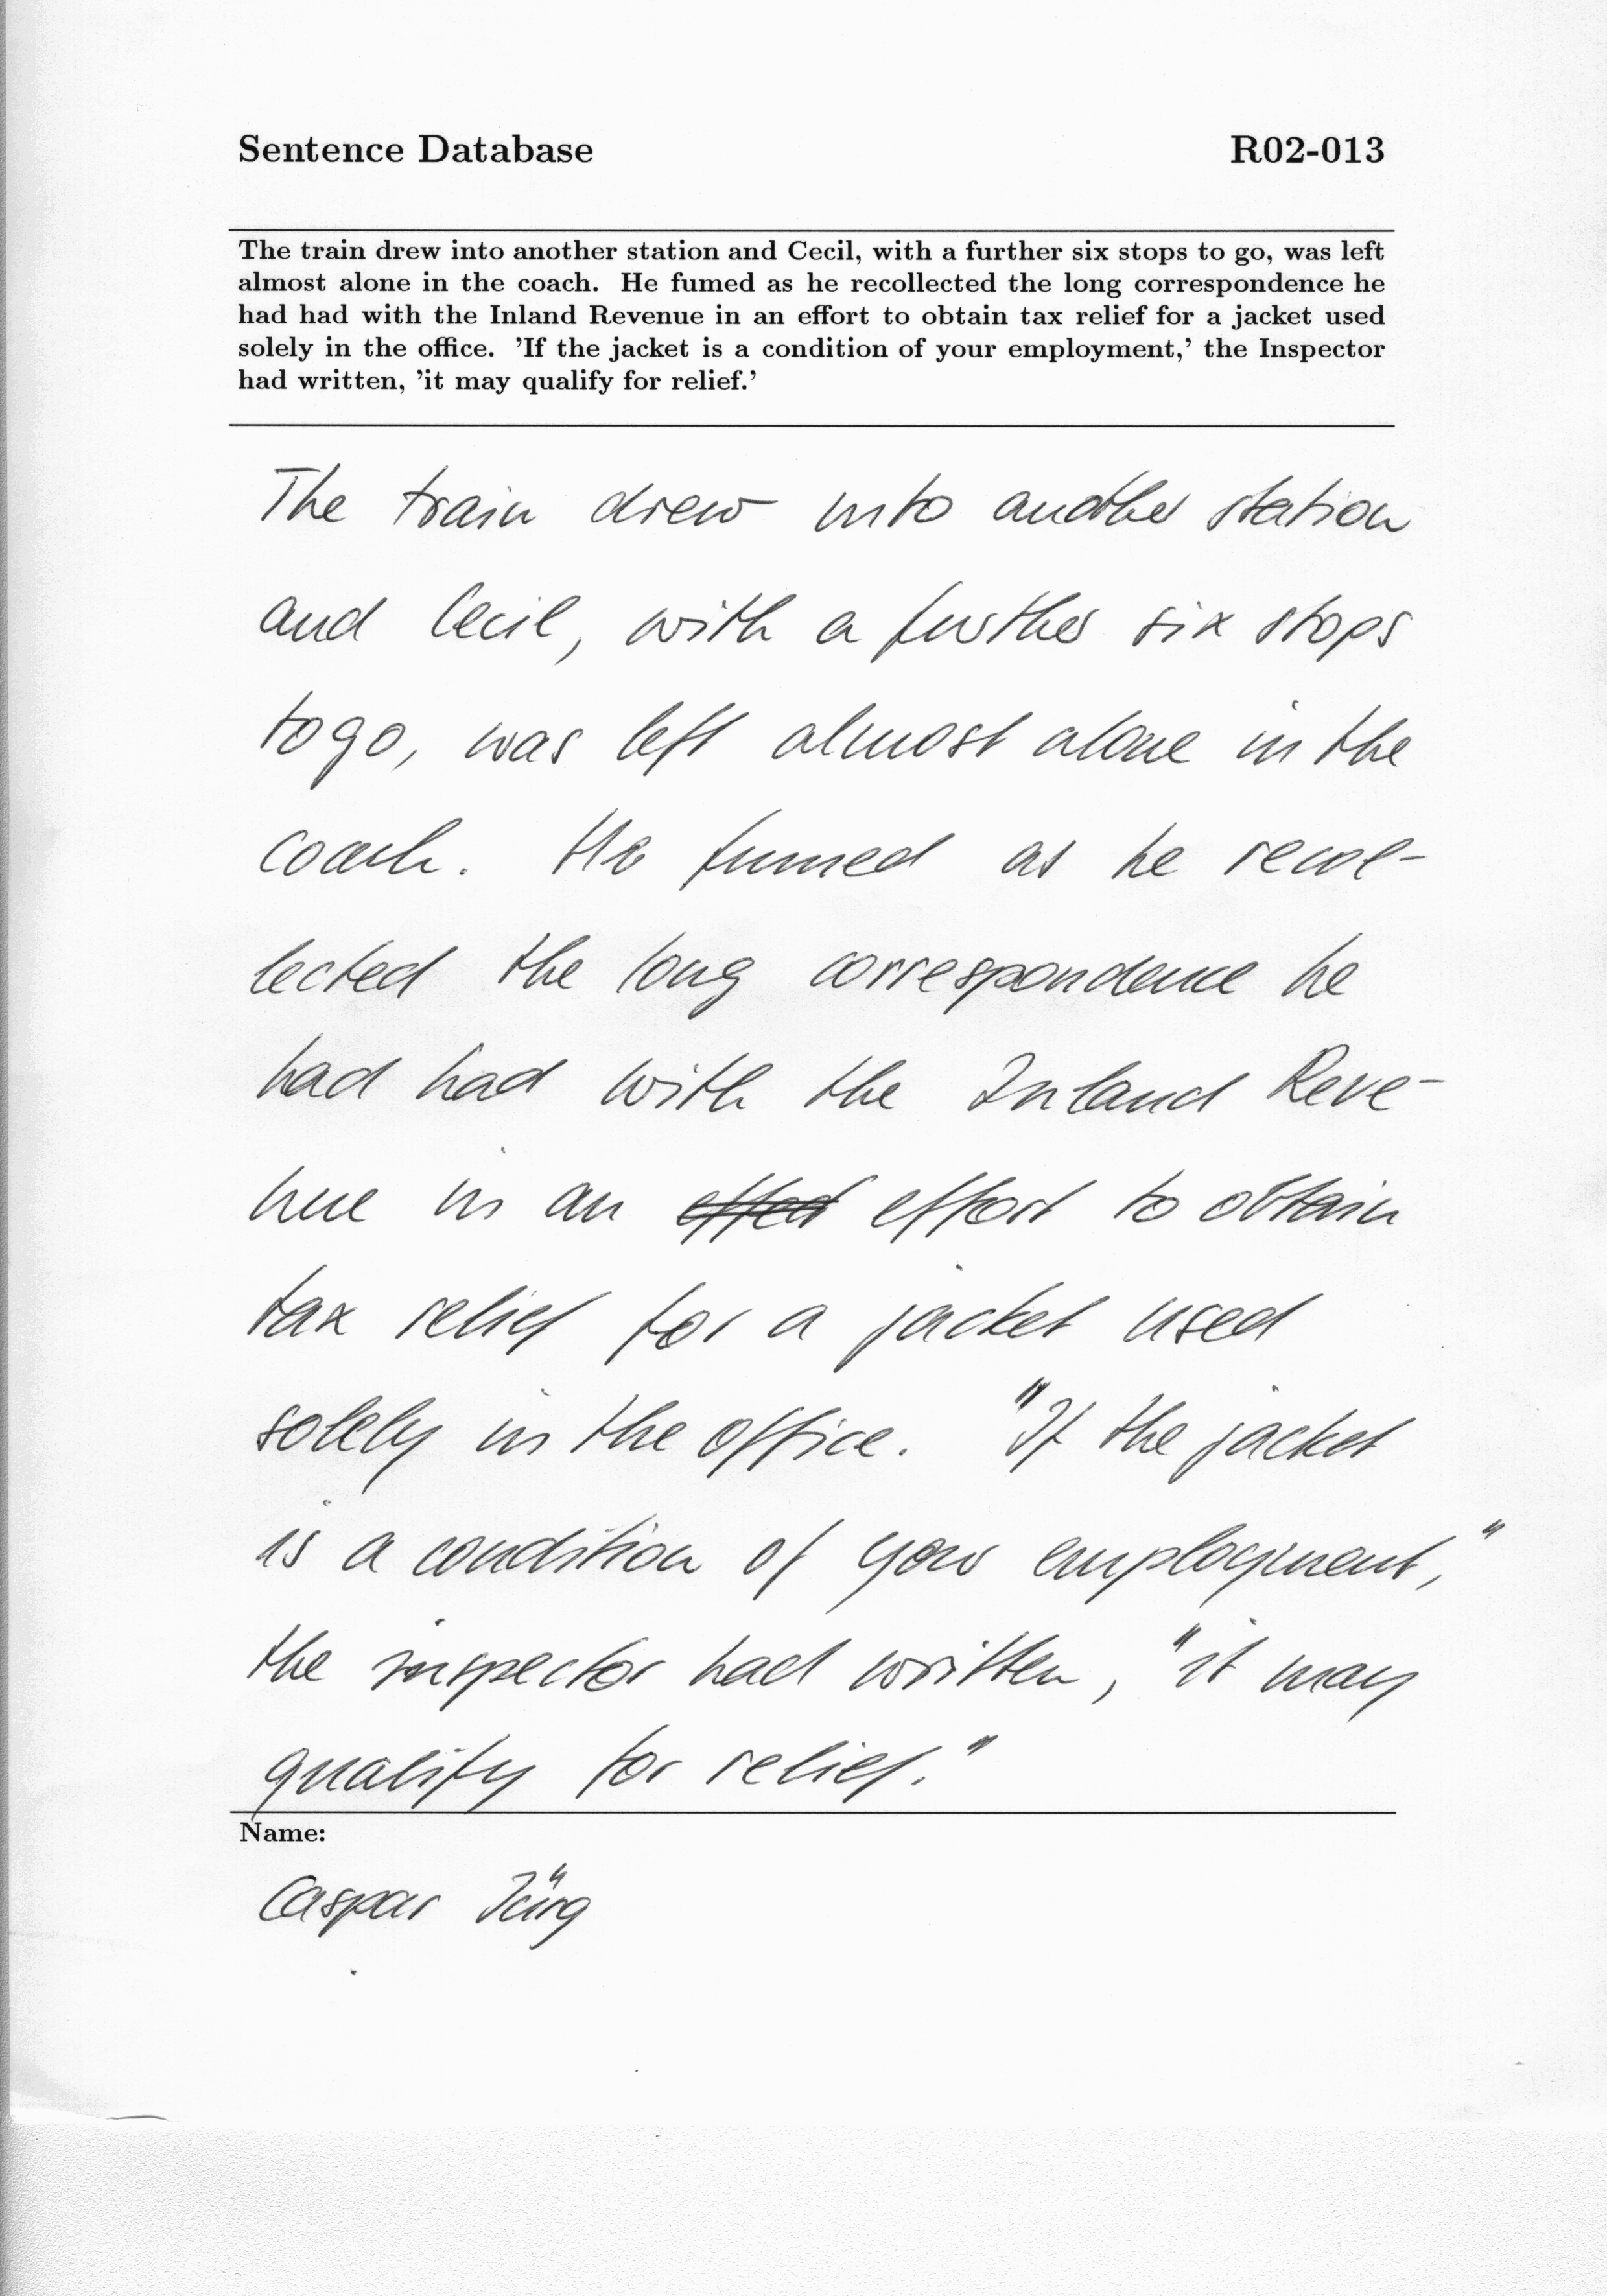 Sentence Database R02-013
The train drew into another station and Cecil, with a further six stops to go, was left
almost alone in the coach. He fumed as he recollected the long correspondence he
had had with the Inland Revenue in an effort to obtain tax relief for a jacket used
solely in the office. 'If the jacket is a condition of your employment,' the Inspector
had written, 'it may qualify for relief.'
The train drew into another station
and Cecil, with a further six stops
to go, was left almost alone in the
coach. He fumed as he recol-
lected the long correspondence he
had had with the Inland Reve-
nue in an effort to obtain
tax relief for a jacket used
solely in the office. "If the jacket
is a condition of your employment,"
the inspector had written, "it may
qualify for relief."
Name:
Caspar Jürg